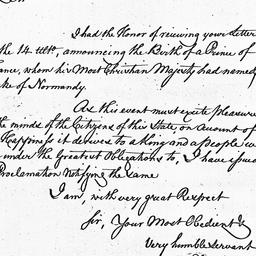 I had the Honor of receiving your Letter
the 14 Ulto, announcing the Birth of a Prince of
ance, whom his Most Christian Majesty had named
ke of Normandy.
As this event must excite pleasure
the minds of the Citizens of this State, on Amount of
Happiness it delivers to a King and a people w
under the Greatest Obligations to, I have issued
Proclamation Notifying the Same
I am, with very great Respect
Sir, Your Most Obedient &
Very humble Servant